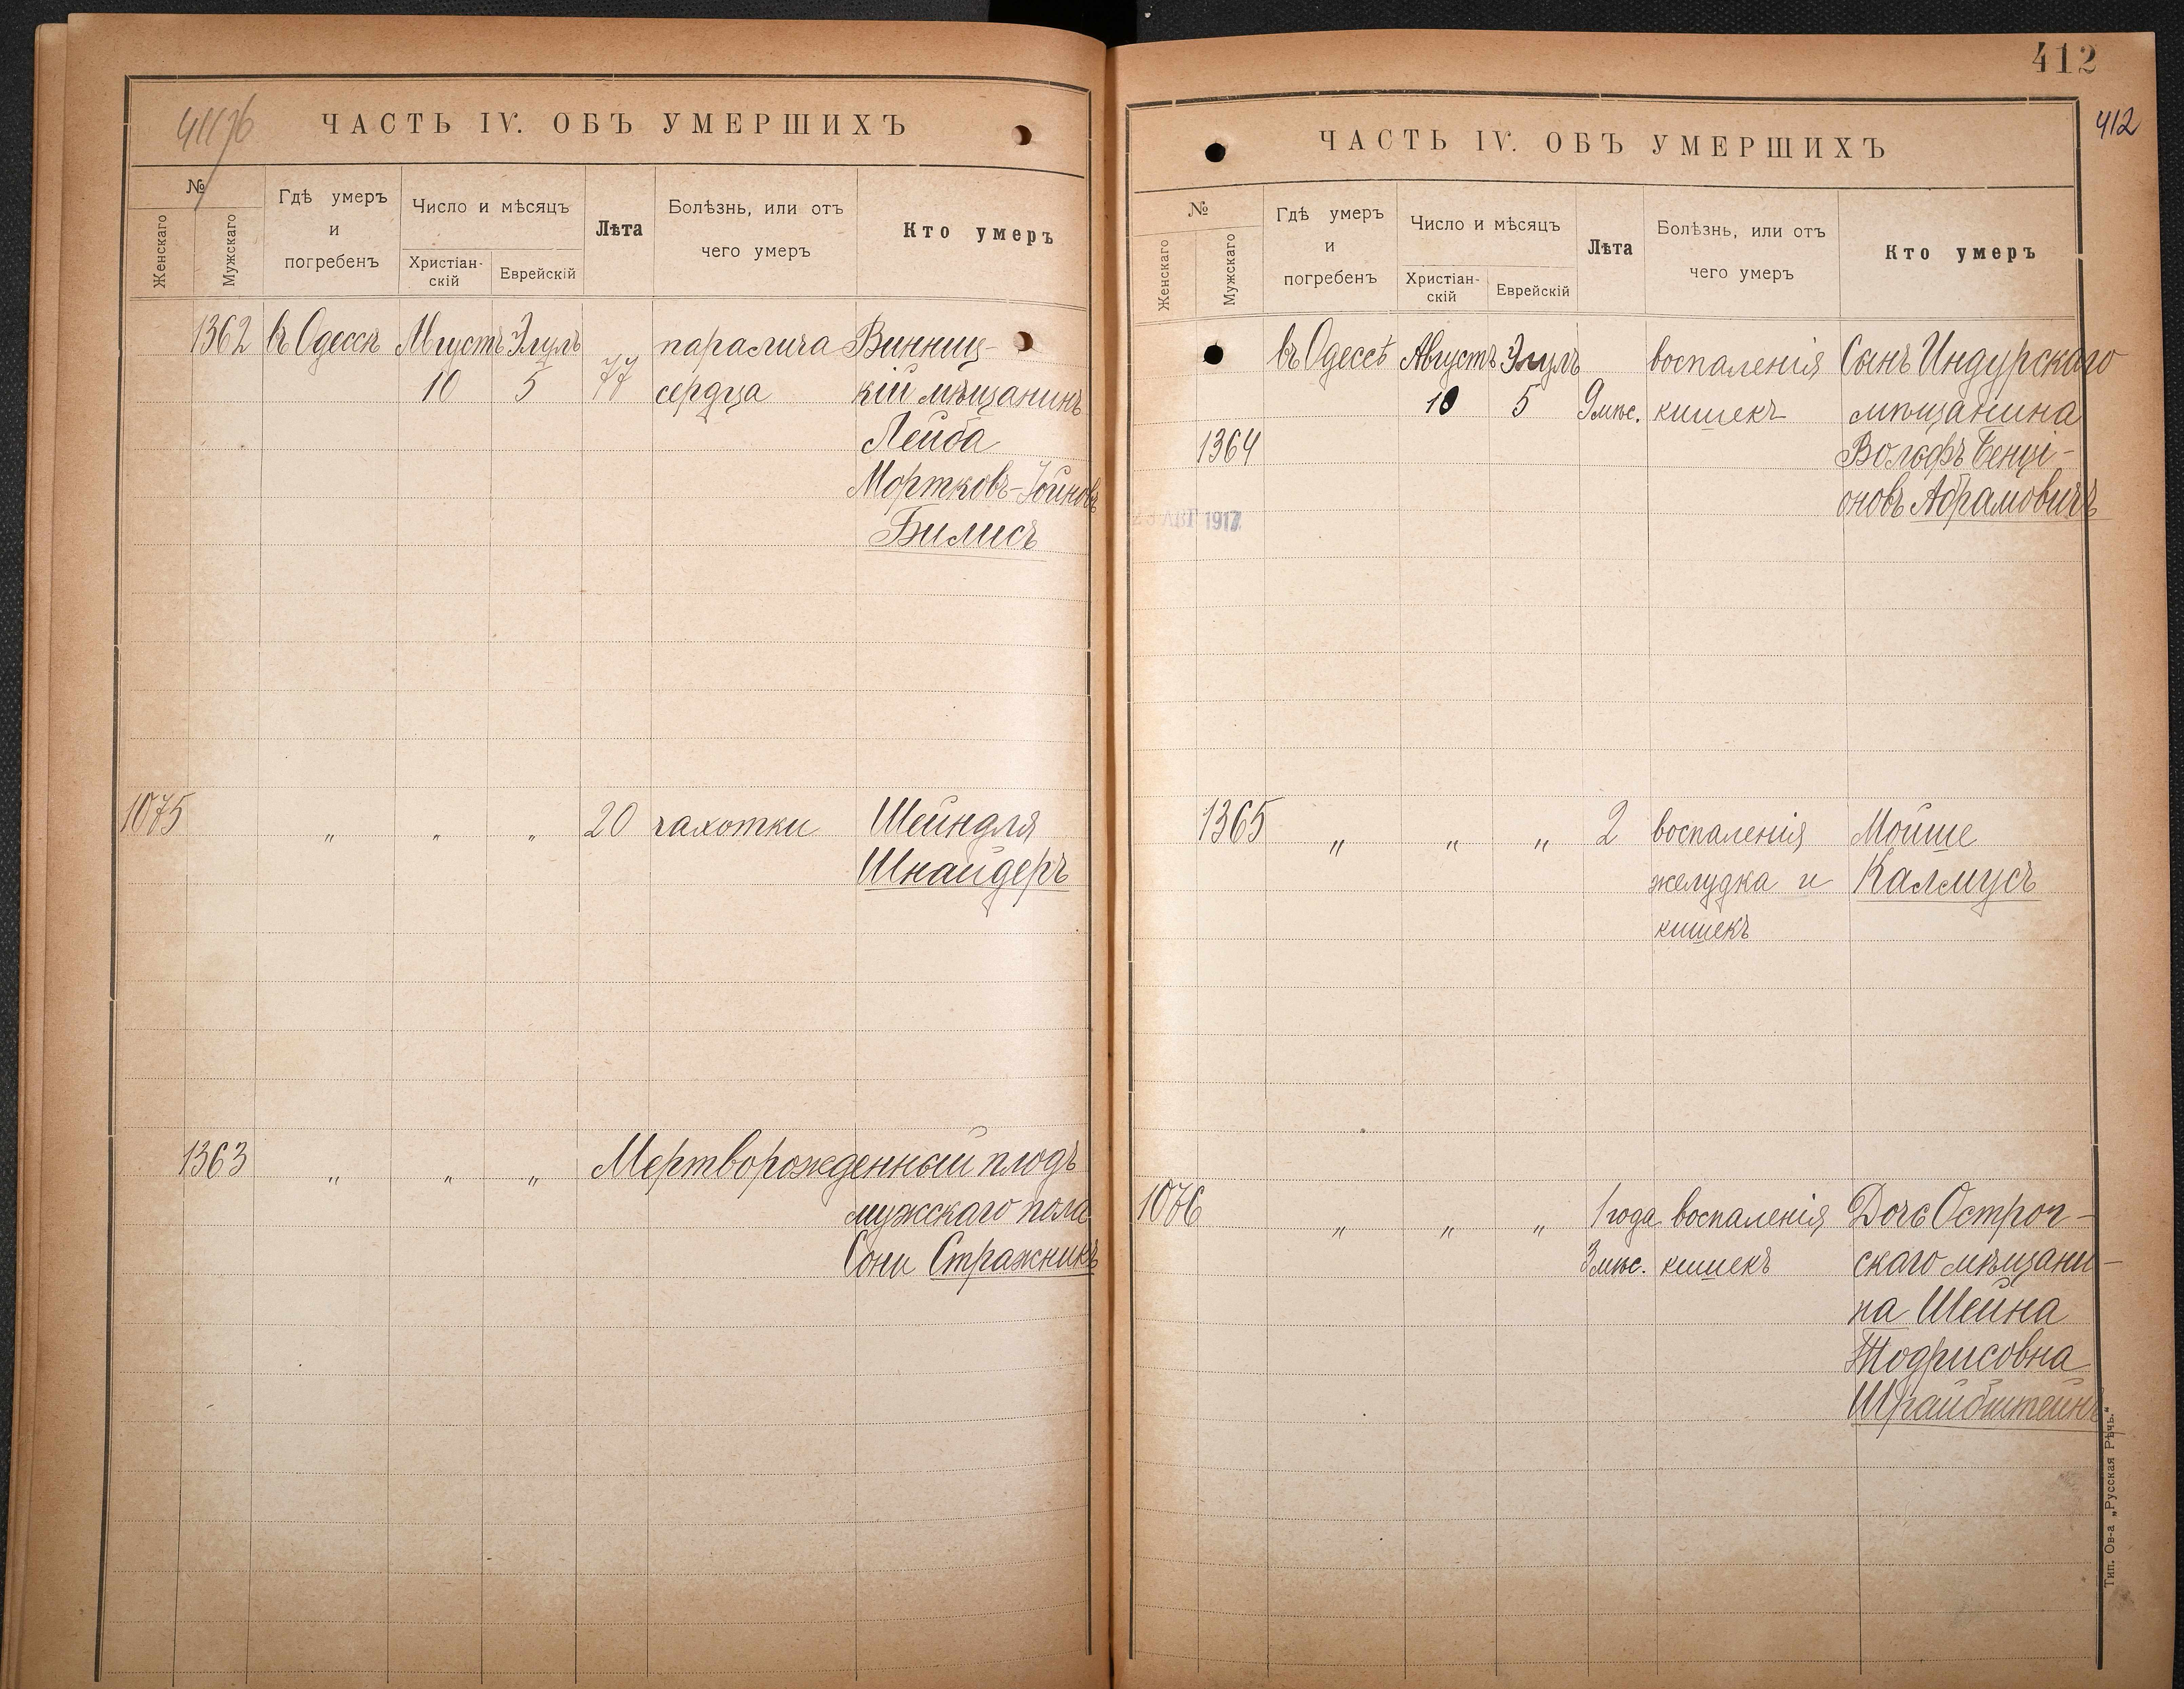 411/76
ЧАСТЬ IV. ОБЪ УМЕРШИХЪ
№
Женскаго
Мужскаго
Гдѣ умеръ
и
погребенъ
Число и мѣсяцъ
Христіан-
скій
Еврейскій
Лѣта
Болѣзнь, или отъ
чего умеръ
Кто умеръ
1362 въ Одессѣ Августъ Элулъ паралича Винниц-
10 5 77 сердца кій мѣщанинъ
Лейба
Мортковъ-Іойновъ
Билисъ
1075 " " " 20 чахотки Шейндля
Шнайдеръ
1363 " " " Мертворожденный плодъ
мужскаго пола
Сони Стражникъ
412
412
ЧАСТЬ IV. ОБЪ УМЕРШИХЪ
№
Женскаго
Мужскаго
Гдѣ умеръ
и
погребенъ
Число и мѣсяцъ
Христіан-
скій
Еврейскій
Лѣта
Болѣзнь, или отъ
чего умеръ
Кто умеръ
въ Одессѣ Августъ Элулъ воспаленія Сынъ Индурскаго
10 5 9 мѣс. кишекъ мѣщанина
1364 Вольфъ Бенці-
оновъ Абрамовичъ
23 АВГ 1917
1365 " " " 2 воспаленія Мойше
желудка и Калмусъ
кишекъ
1076 " " " 1 года воспаленія Дочь Остроч-
3 мѣс. кишекъ скаго мѣщани-
на Шейна
Тодрисовна
Шрайбштейнъ
Тип. Ов-а „Русская Рѣчь.“